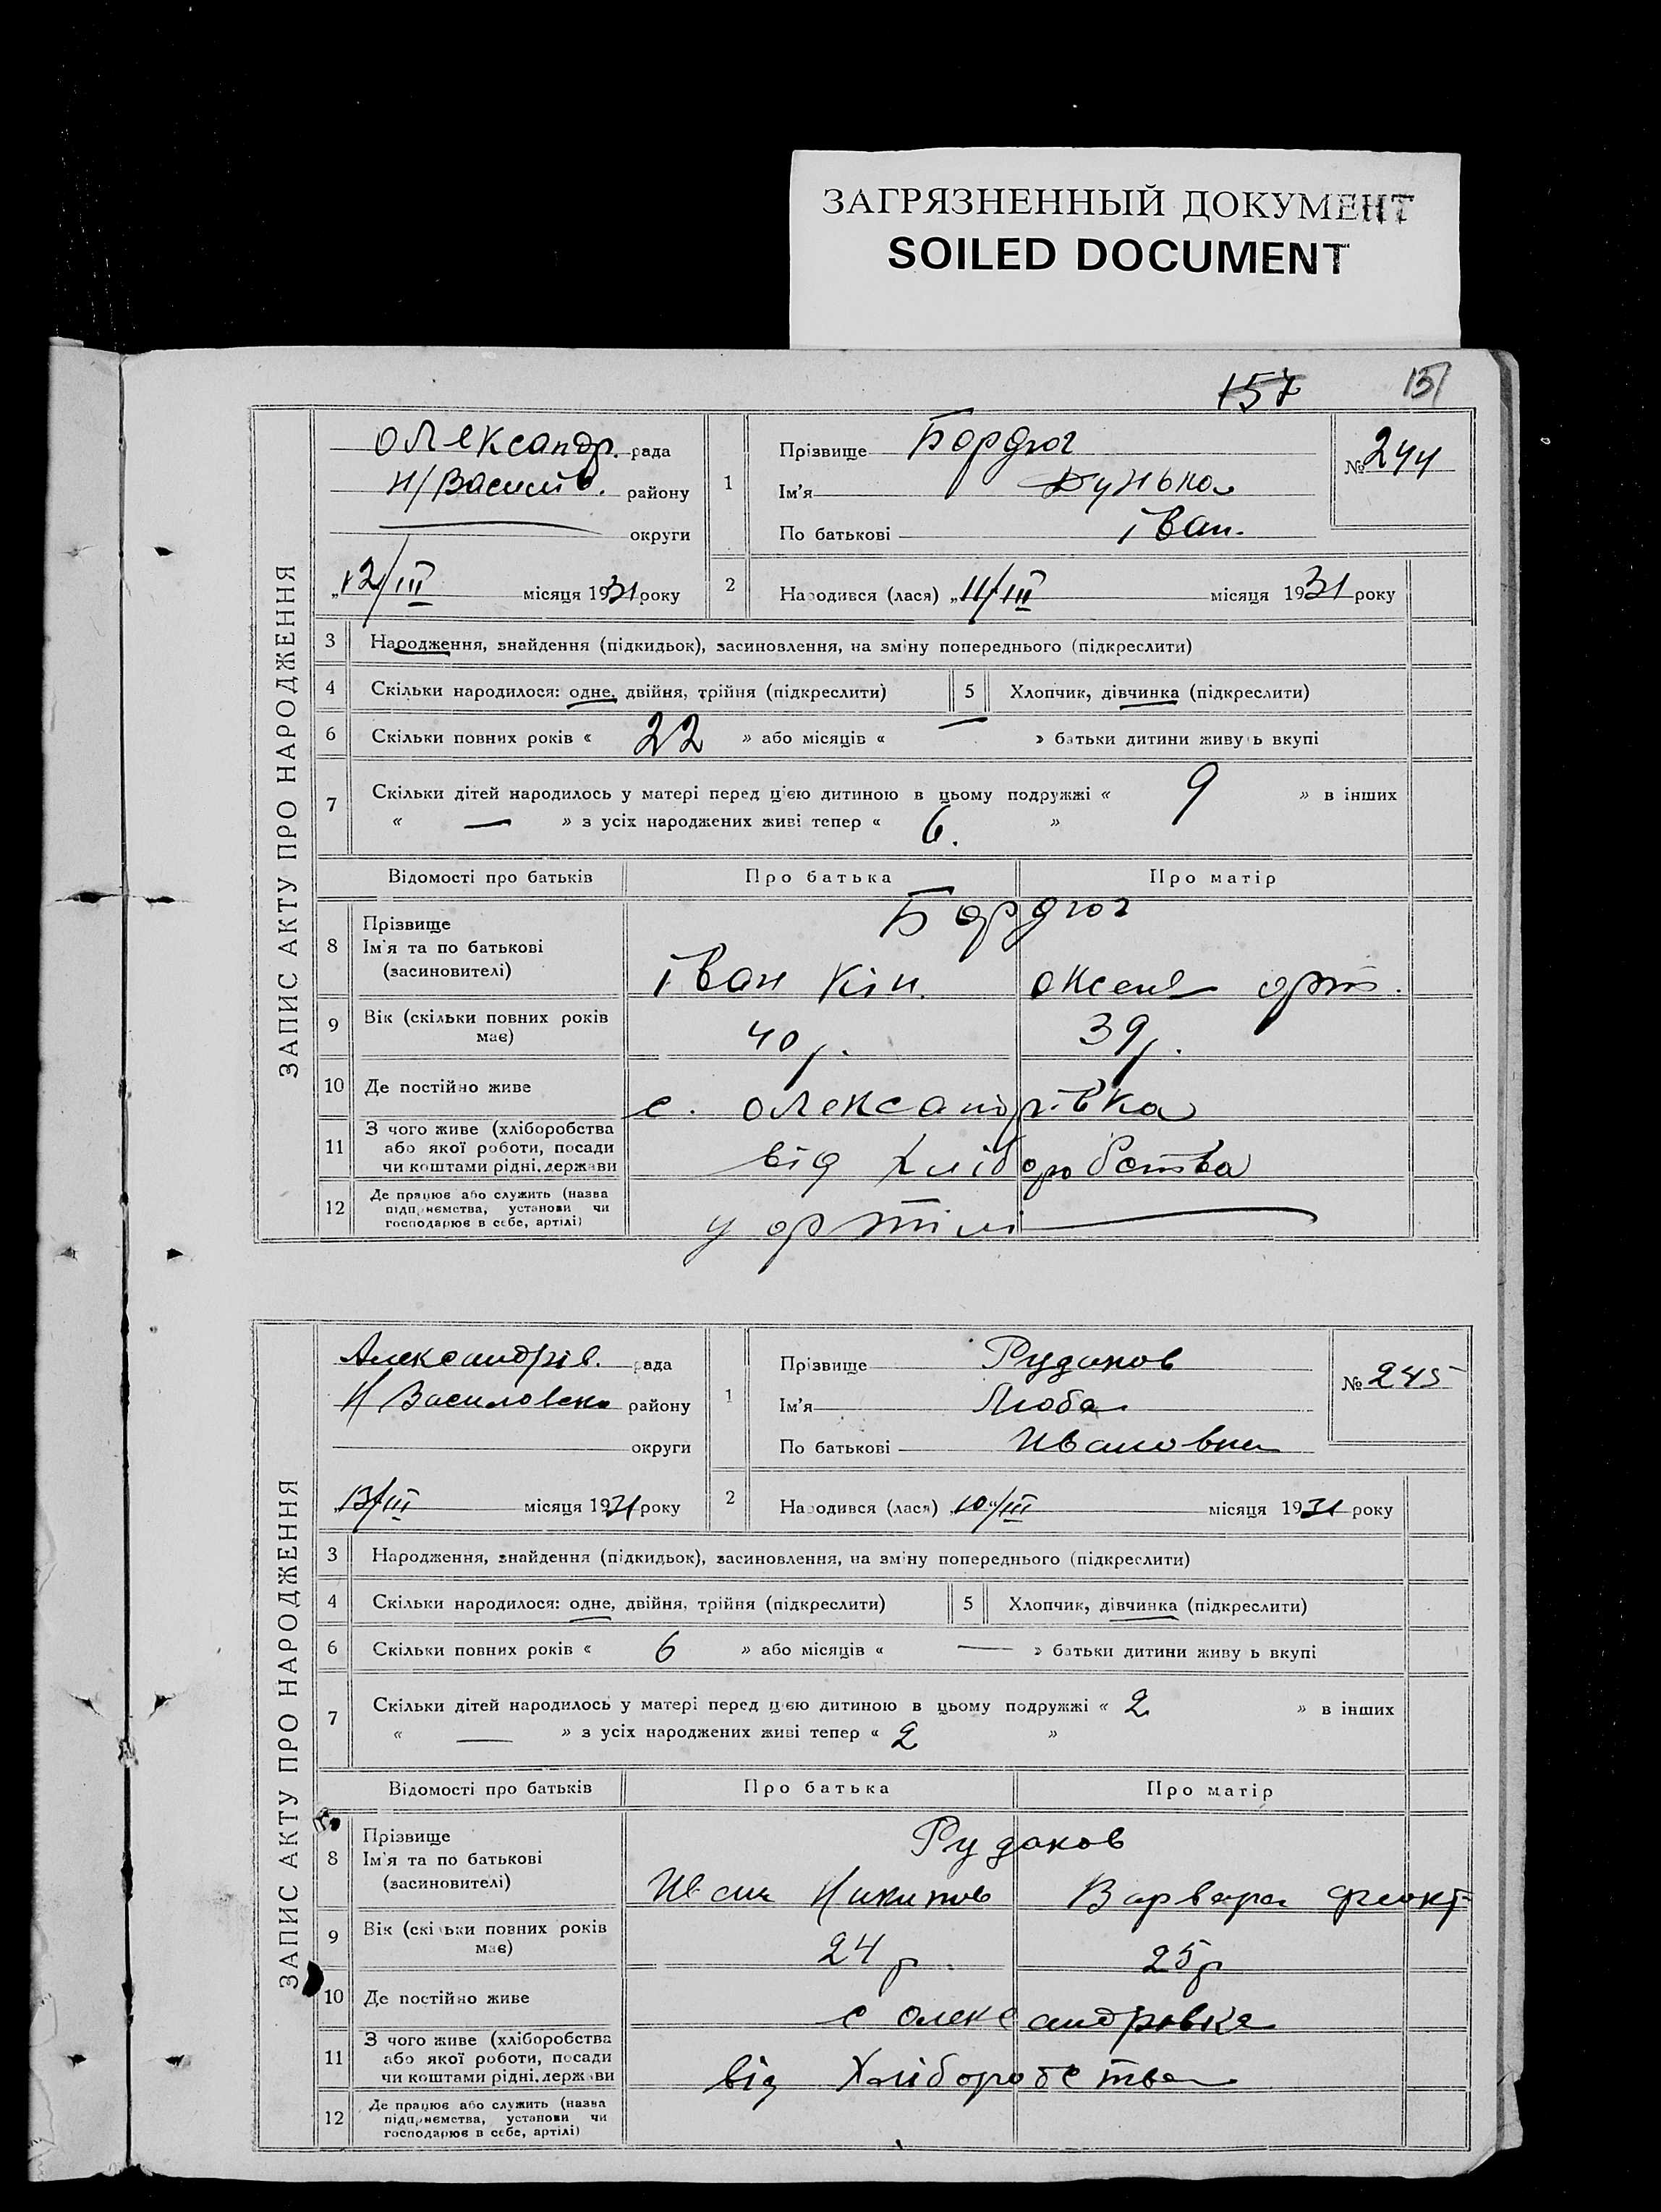 ЗАГРЯЗНЕННЫЙ ДОКУМЕНТ
SOILED DOCUMENT
157
151
ЗАПИС АКТУ ПРО НАРОДЖЕННЯ
Олександр. рада
Н/Васил. району
округи
„12/III місяця 1931 року
1
Прізвище Бордюг
Ім'я Дунька
По батькові Іван.
№ 244
2
Народився (лася) „11/III місяця 1931 року
3 Народження, знайдення (підкидьок), засиновлення, на зміну попереднього (підкреслити)
4 Скільки народилося: одне, двійня, трійня (підкреслити)
5 Хлопчик, дівчинка (підкреслити)
6 Скільки повних років « 22 » або місяців « — » батьки дитини живуть вкупі
7 Скільки дітей народилось у матері перед цією дитиною в цьому подружжі « 9 » в інших
« — » з усіх народжених живі тепер « 6. »
Відомості про батьків Про батька Про матір
8 Прізвище
Ім'я та по батькові
(засиновителі)
Бордюг
Іван Кін. Оксена
9 Вік (скільки повних років
має)
40 р. 39 р.
10 Де постійно живе
с. Олександрівка
11 З чого живе (хліборобства
або якої роботи, посади
чи коштами рідні, держави
від хліборобства
12 Де працює або служить (назва
підприємства, установи чи
господарює в себе, артілі)
у артілі
ЗАПИС АКТУ ПРО НАРОДЖЕННЯ
Александрів. рада
Н Василовськ району
округи
„13/III місяця 1931 року
1
Прізвище Рудаков
Ім'я Люба
По батькові Ивановна
№ 245
2
Народився (лася) „10/III місяця 1931 року
3 Народження, знайдення (підкидьок), засиновлення, на зміну попереднього (підкреслити)
4 Скільки народилося: одне, двійня, трійня (підкреслити)
5 Хлопчик, дівчинка (підкреслити)
6 Скільки повних років « 6 » або місяців « — » батьки дитини живуть вкупі
7 Скільки дітей народилось у матері перед цією дитиною в цьому подружжі « 2 » в інших
« — » з усіх народжених живі тепер « 2 »
Відомості про батьків Про батька Про матір
8 Прізвище
Ім'я та по батькові
(засиновителі)
Рудаков
Иван Никитов Варвара Феокт
9 Вік (скільки повних років
має)
24 р. 25 р
10 Де постійно живе
с Олександровка
11 З чого живе (хліборобства
або якої роботи, посади
чи коштами рідні, держави
від Хліборобства
12 Де працює або служить (назва
підприємства, установи чи
господарює в себе, артілі)